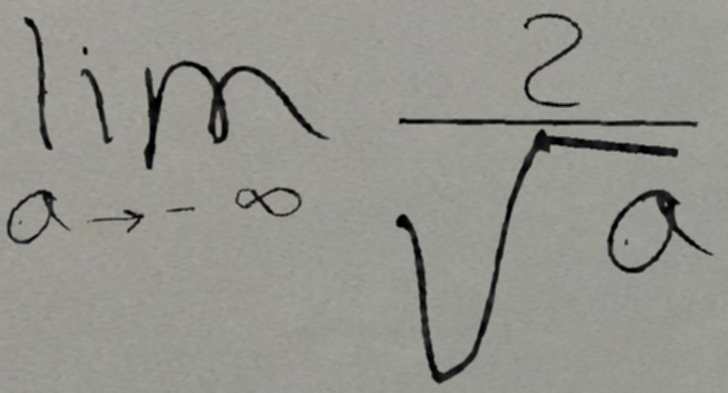 \lim_{a \to -\infty} \frac{2}{\sqrt{a}}